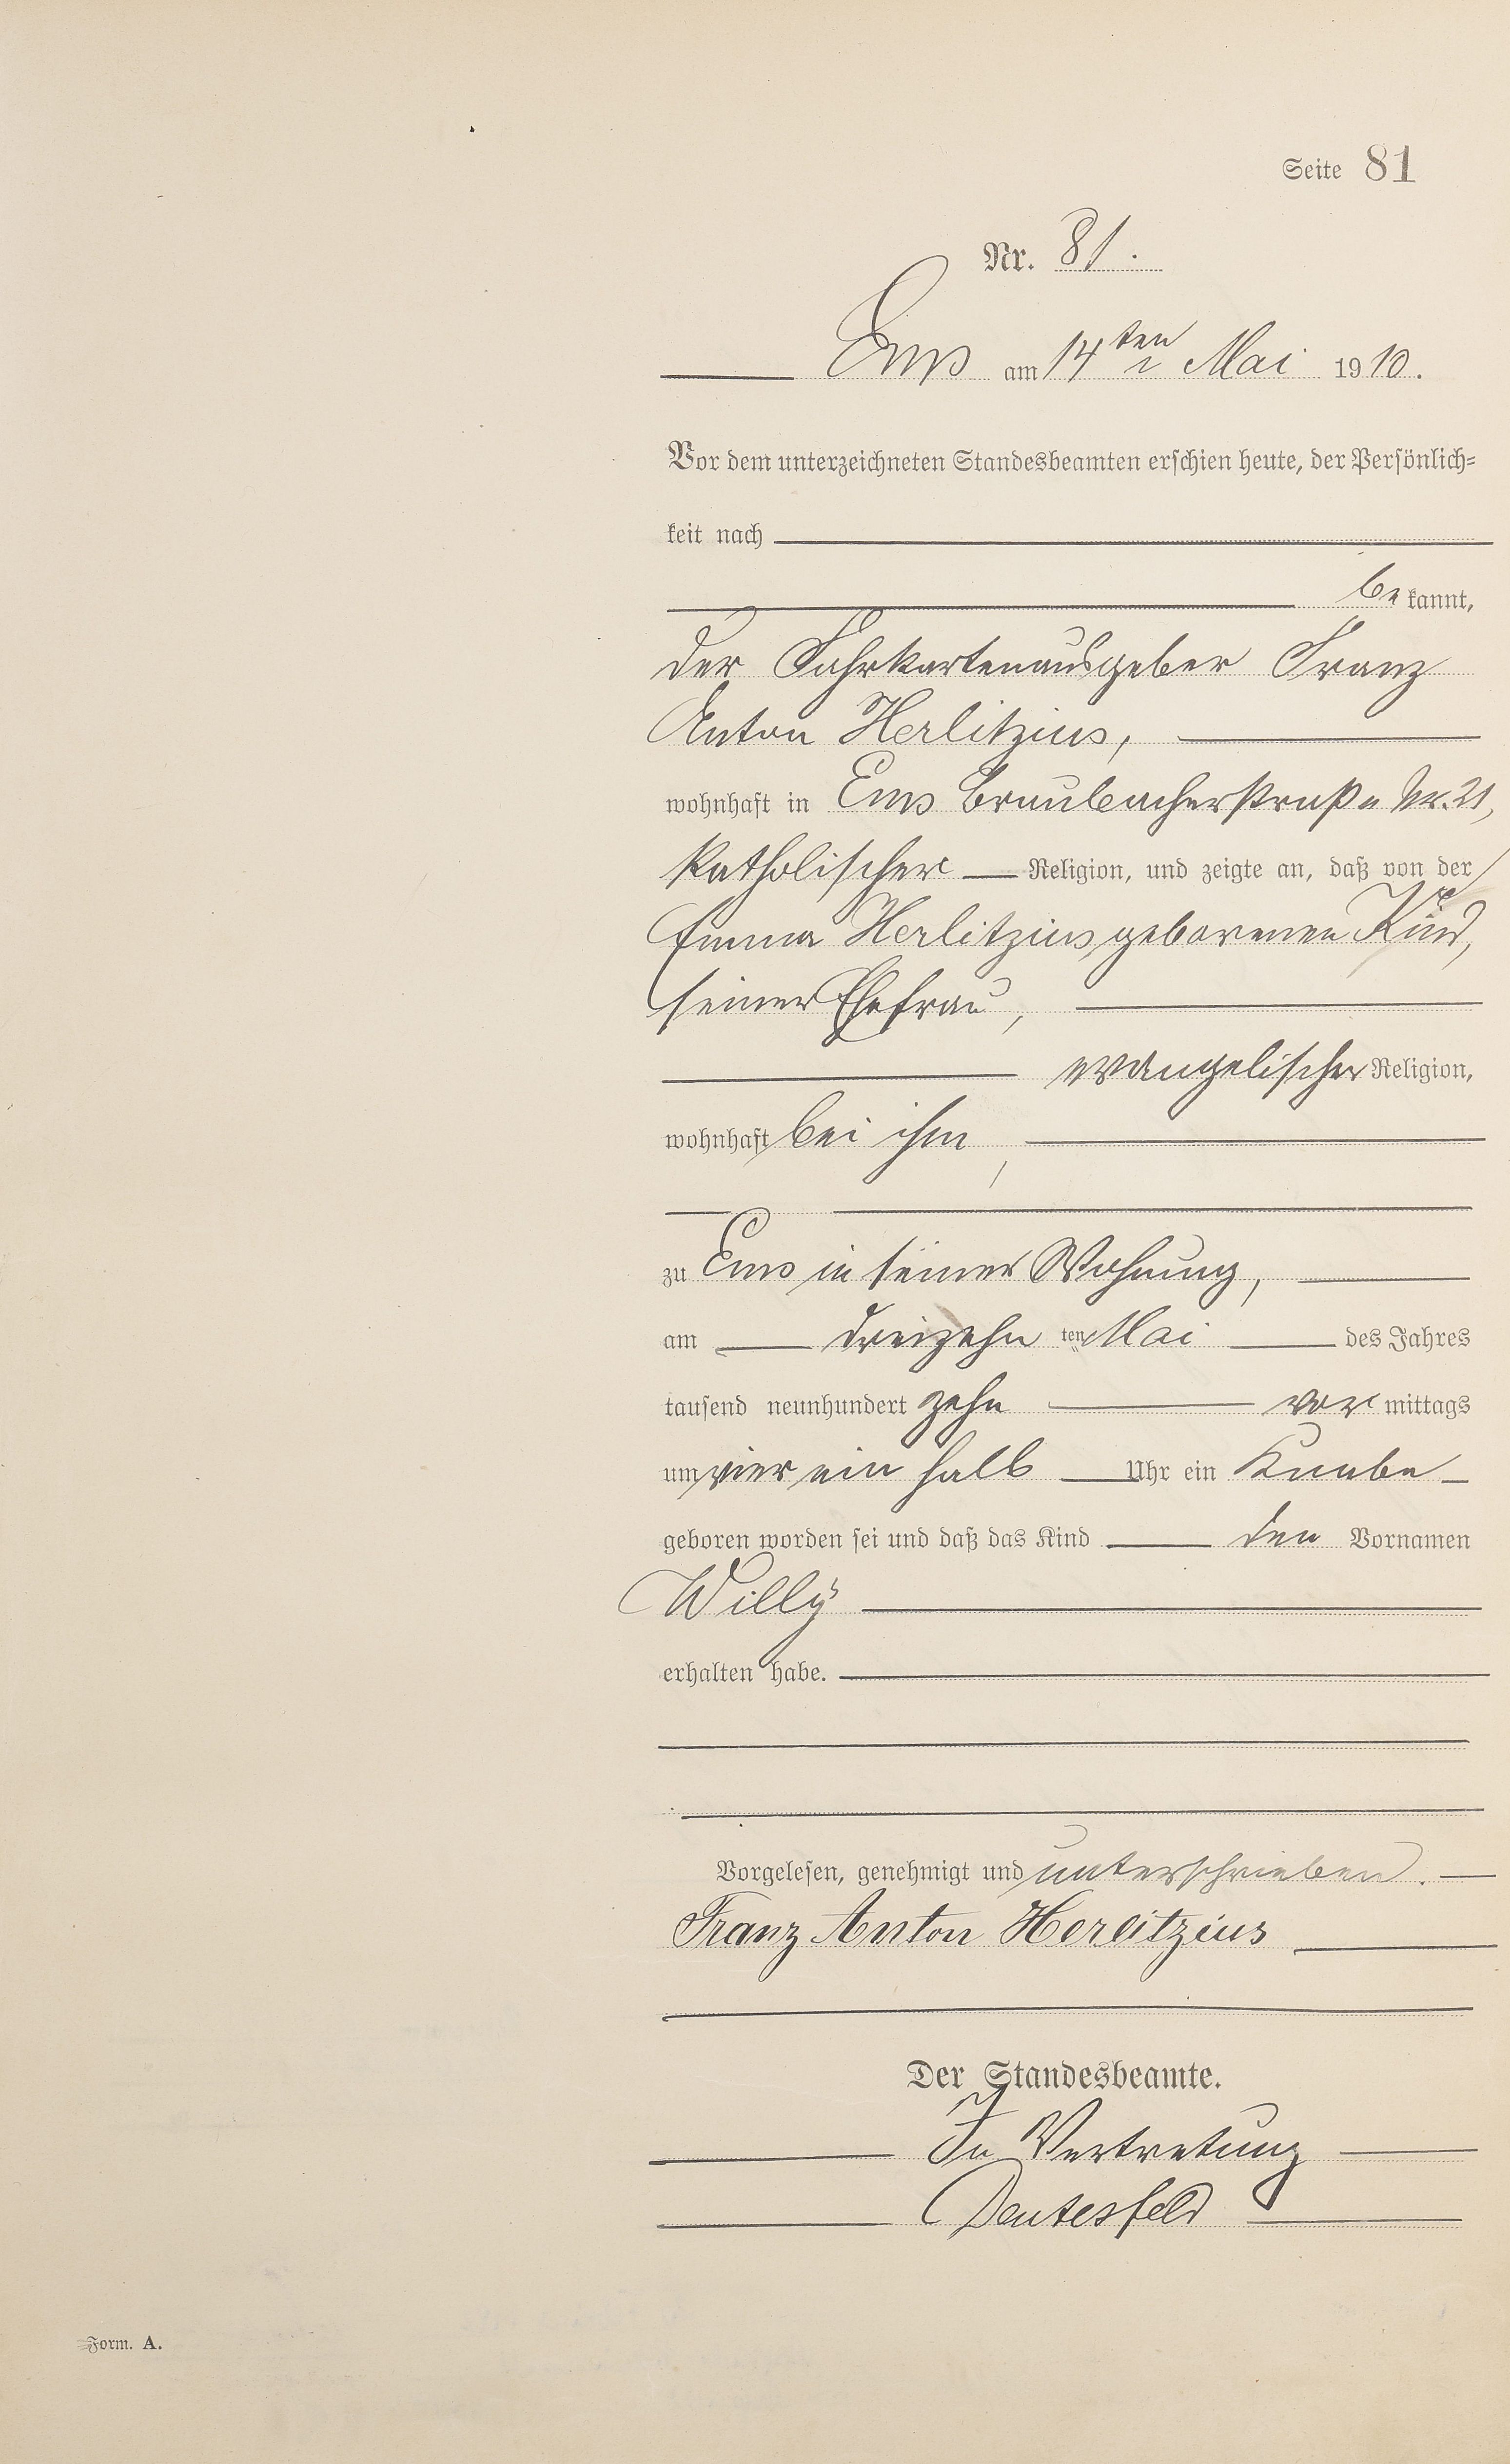 Seite 81
Nr. 81.
Ems am 14ten Mai 1910.
Vor dem unterzeichneten Standesbeamten erschien heute, der Persönlich-
keit nach
bekannt,
der Fahrkartenausgeber Franz
Anton Herlitzius,
wohnhaft in Ems Braubacherstraße Nr. 21,
katholischer Religion, und zeigte an, daß von der
Emma Herlitzius geborenen Kind,
seiner Ehefrau,
evangelischer Religion,
wohnhaft bei ihm,
zu Ems in seiner Wohnung,
am dreizehnten Mai des Jahres
tausend neunhundert zehn vormittags
um vier ein halb Uhr ein Knabe
geboren worden sei und daß das Kind den Vornamen
Willy
erhalten habe.
Vorgelesen, genehmigt und unterschrieben.
Franz Anton Herlitzius
Der Standesbeamte.
In Vertretung
Deutesfeld
Form. A.